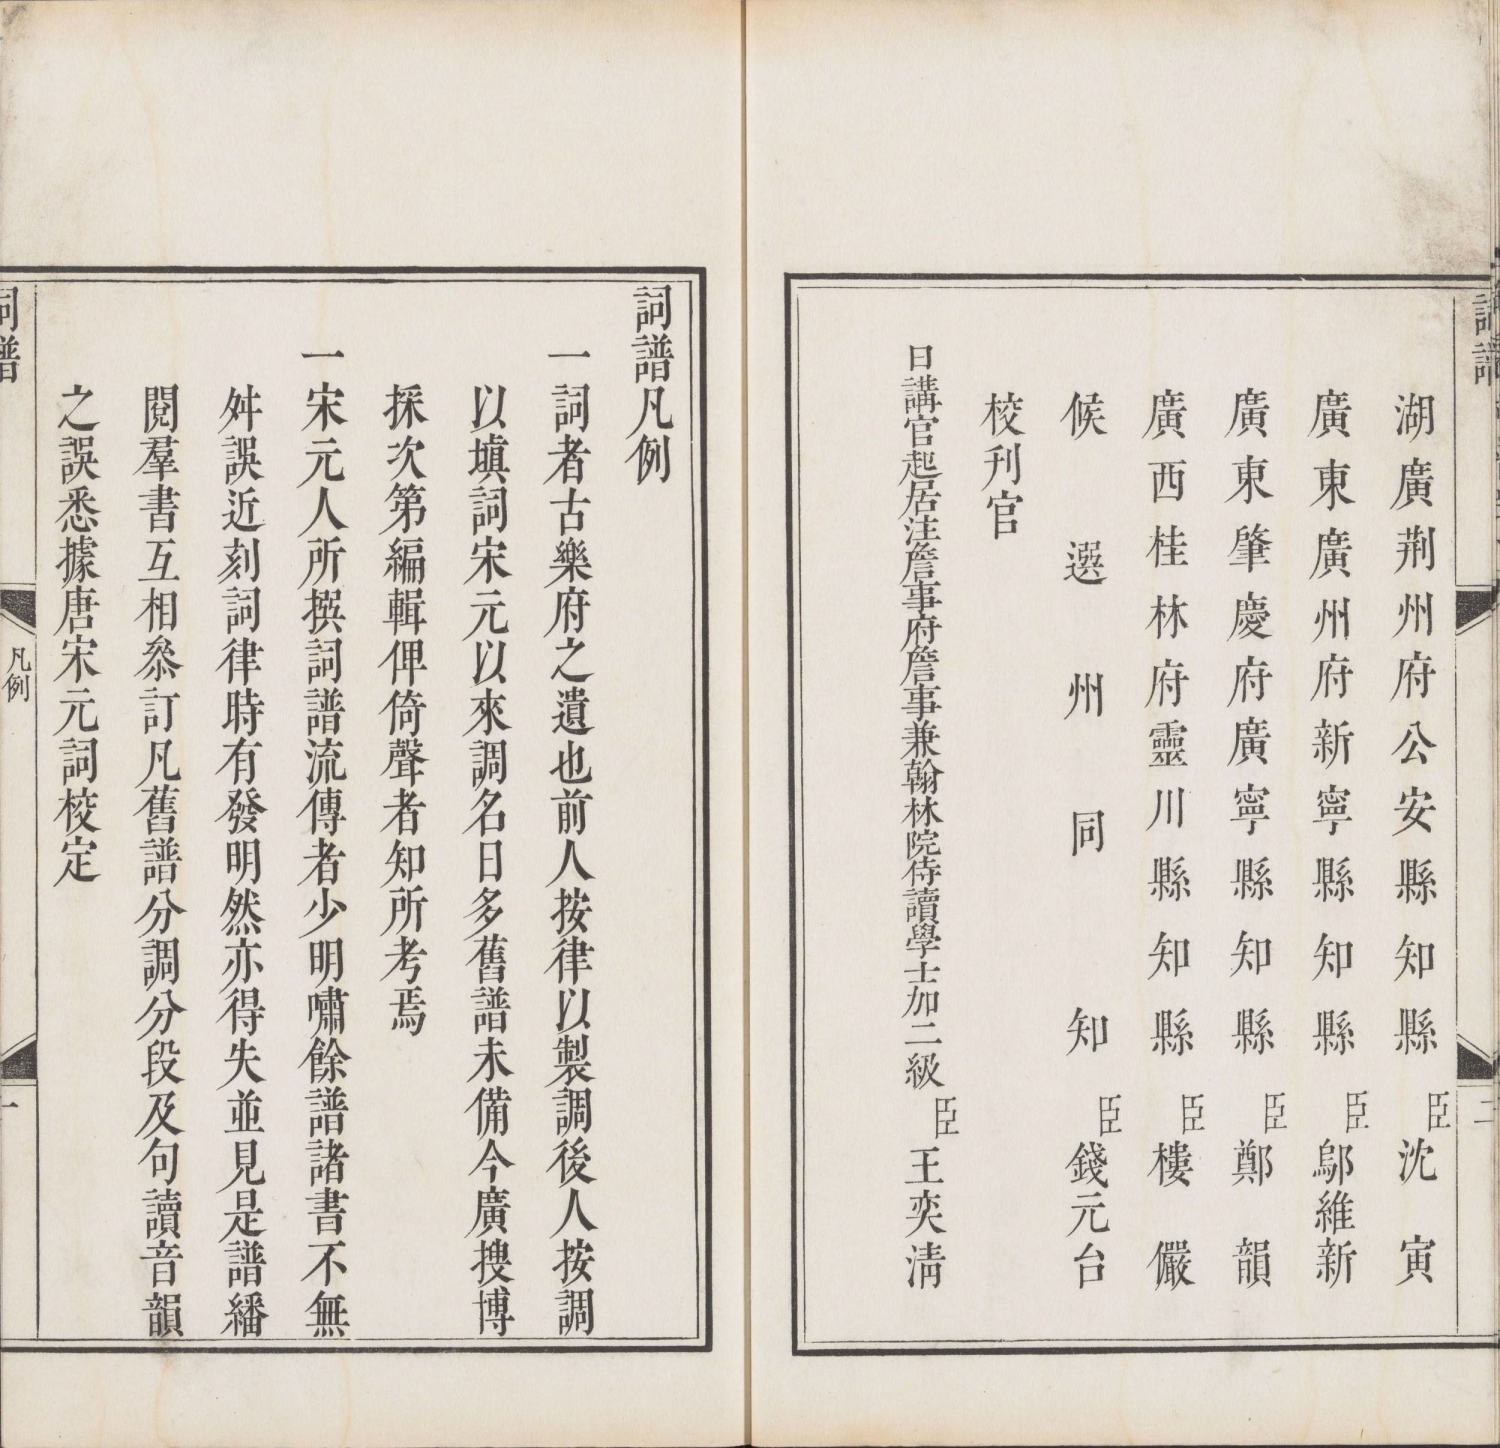 湖廣荆州府公安縣知縣臣沈寅
廣東廣州府新寧縣知縣臣鄔維新
廣東肇慶府廣寧縣知縣臣鄭韻
廣西桂林府靈川縣知縣臣樓儼
候選州同知臣錢元台
校刊官
日講官起居注詹事府詹事兼翰林院侍讀學士加二級臣王奕清
詞譜凡例
一詞者古樂府之遺也前人按律以製調後人按調
以塡詞宋元以來調名日多舊譜未備今廣搜博
採次第編輯俾倚聲者知所考焉
一宋元人所撰詞譜流傳者少明嘯餘譜諸書不無
舛誤近刻詞律時有發明然亦得失並見是譜繙
閱羣書互相叅訂凡舊譜分調分段及句讀音韻
之誤悉據唐宋元詞校定
詞譜
凡例
一